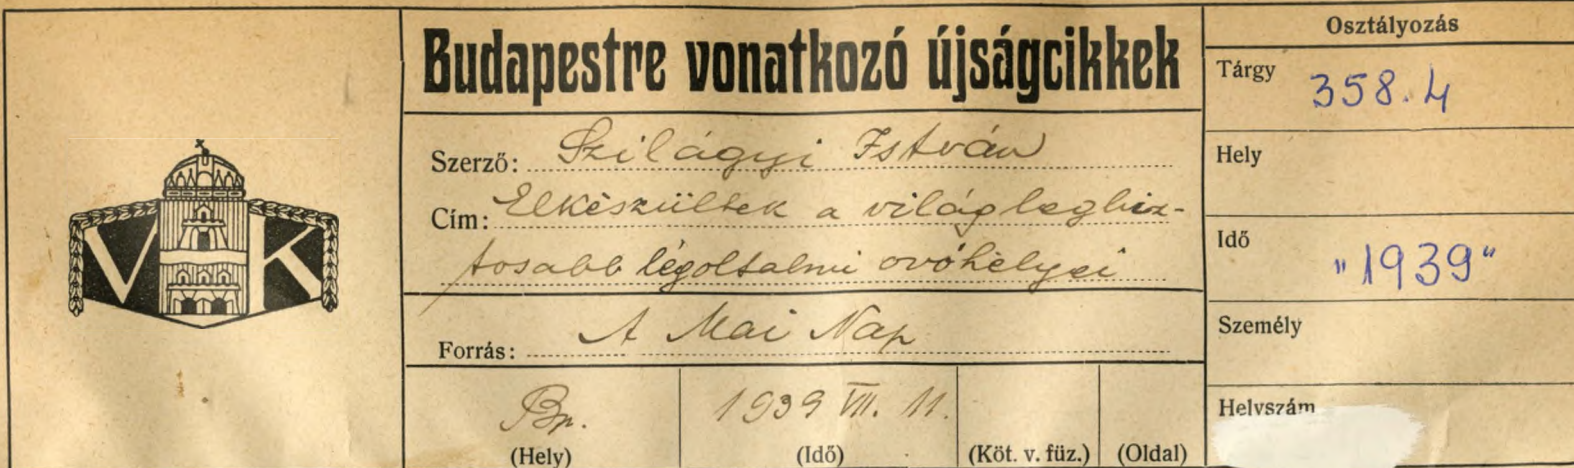 Budapestre vonatkozó újságcikkek
Szerző: Szilágyi István
Cím: Elkészültek a világ legbiz-
tosabb légoltalmi óvóhelyei
Forrás: A Mai Nap
Bp. 1939 VII. 11.
(Hely) (Idő) (Köt. v. füz.) (Oldal)
Osztályozás
Tárgy 358.4
Hely
Idő "1939"
Személy
Helyszám
V K